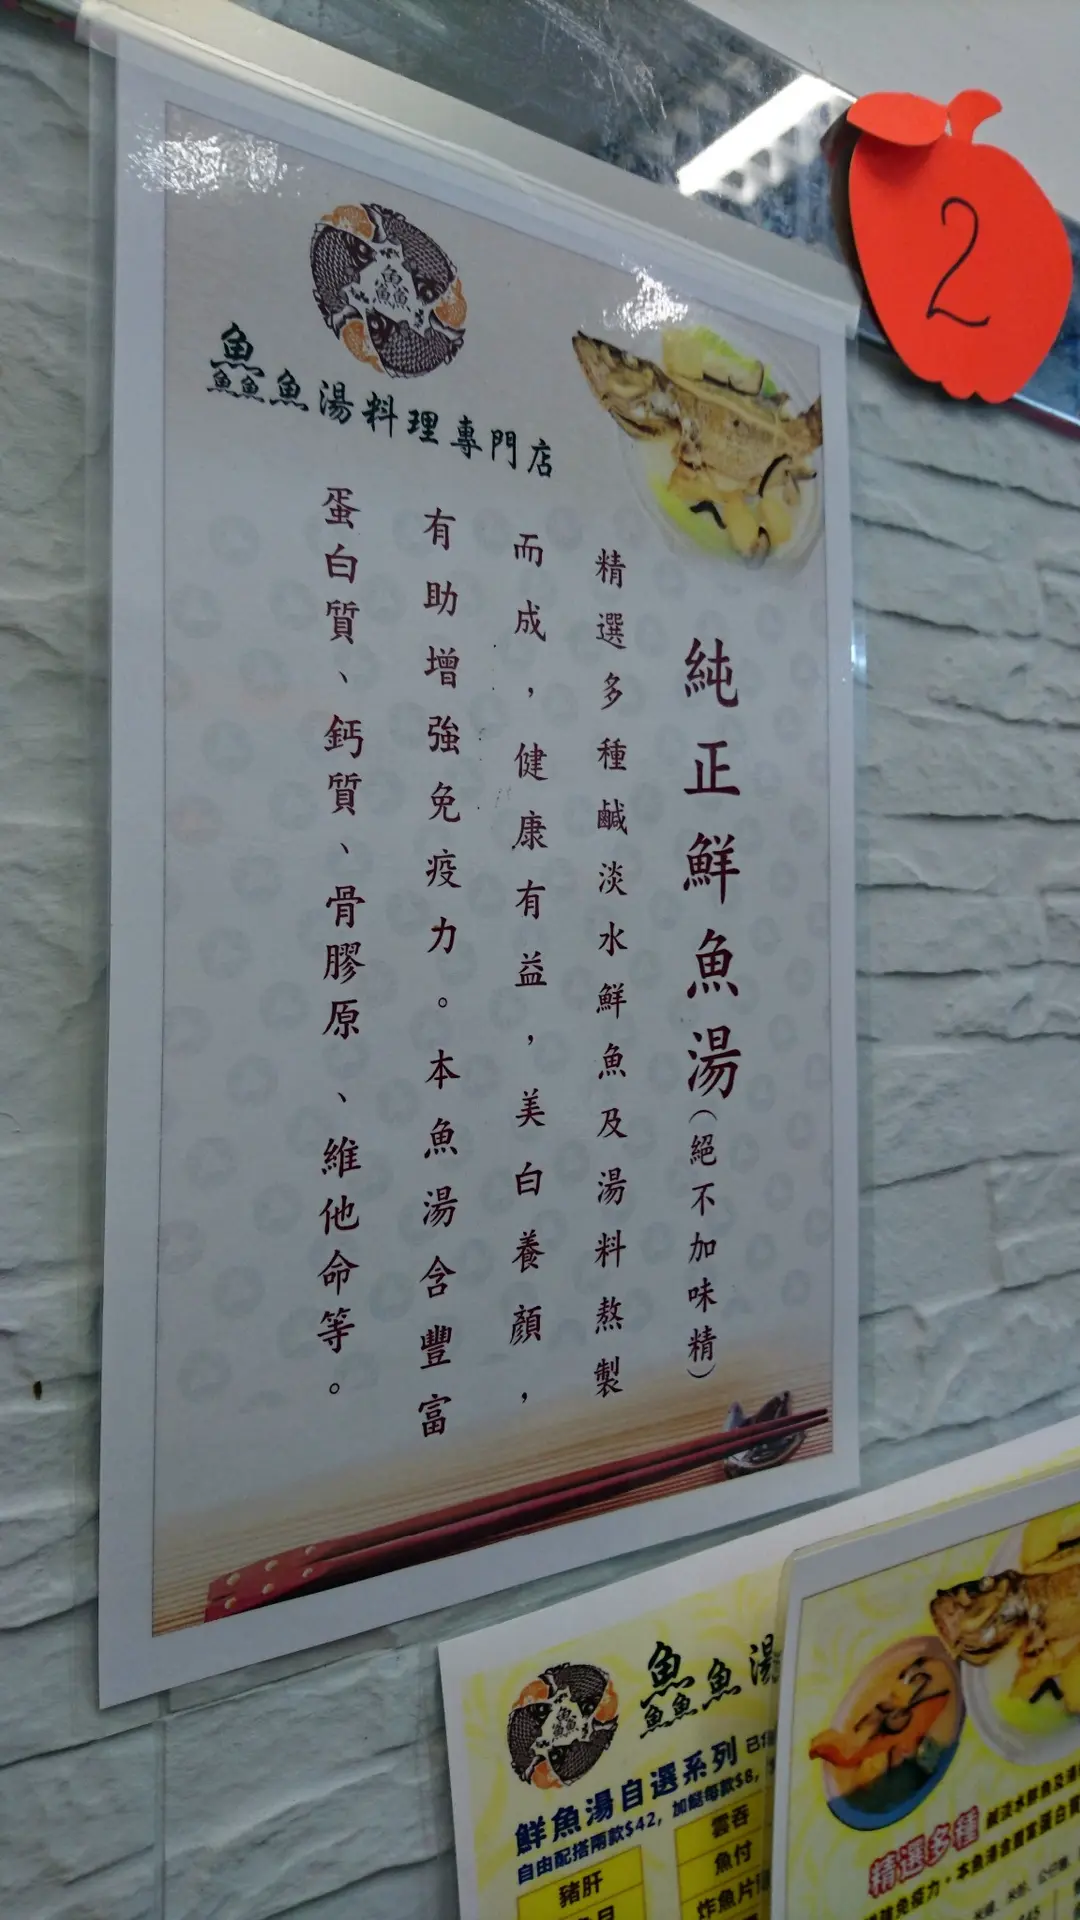 2
鱻
鱻魚湯料理專門店
純正鮮魚湯(絕不加味精)
精選多種鹹淡水鮮魚及湯料熬製
而成，健康有益，美白養顏，
有助增強免疫力。本魚湯含豐富
蛋白質、鈣質、骨膠原、維他命等。
鱻
鱻魚湯
鮮魚湯自選系列
自由配搭兩款$42, 加餸每款$8,
豬肝
雲吞
魚付
炸魚片
精選多種 鹹淡水鮮魚及湯
強免疫力。本魚湯含豐富蛋白質